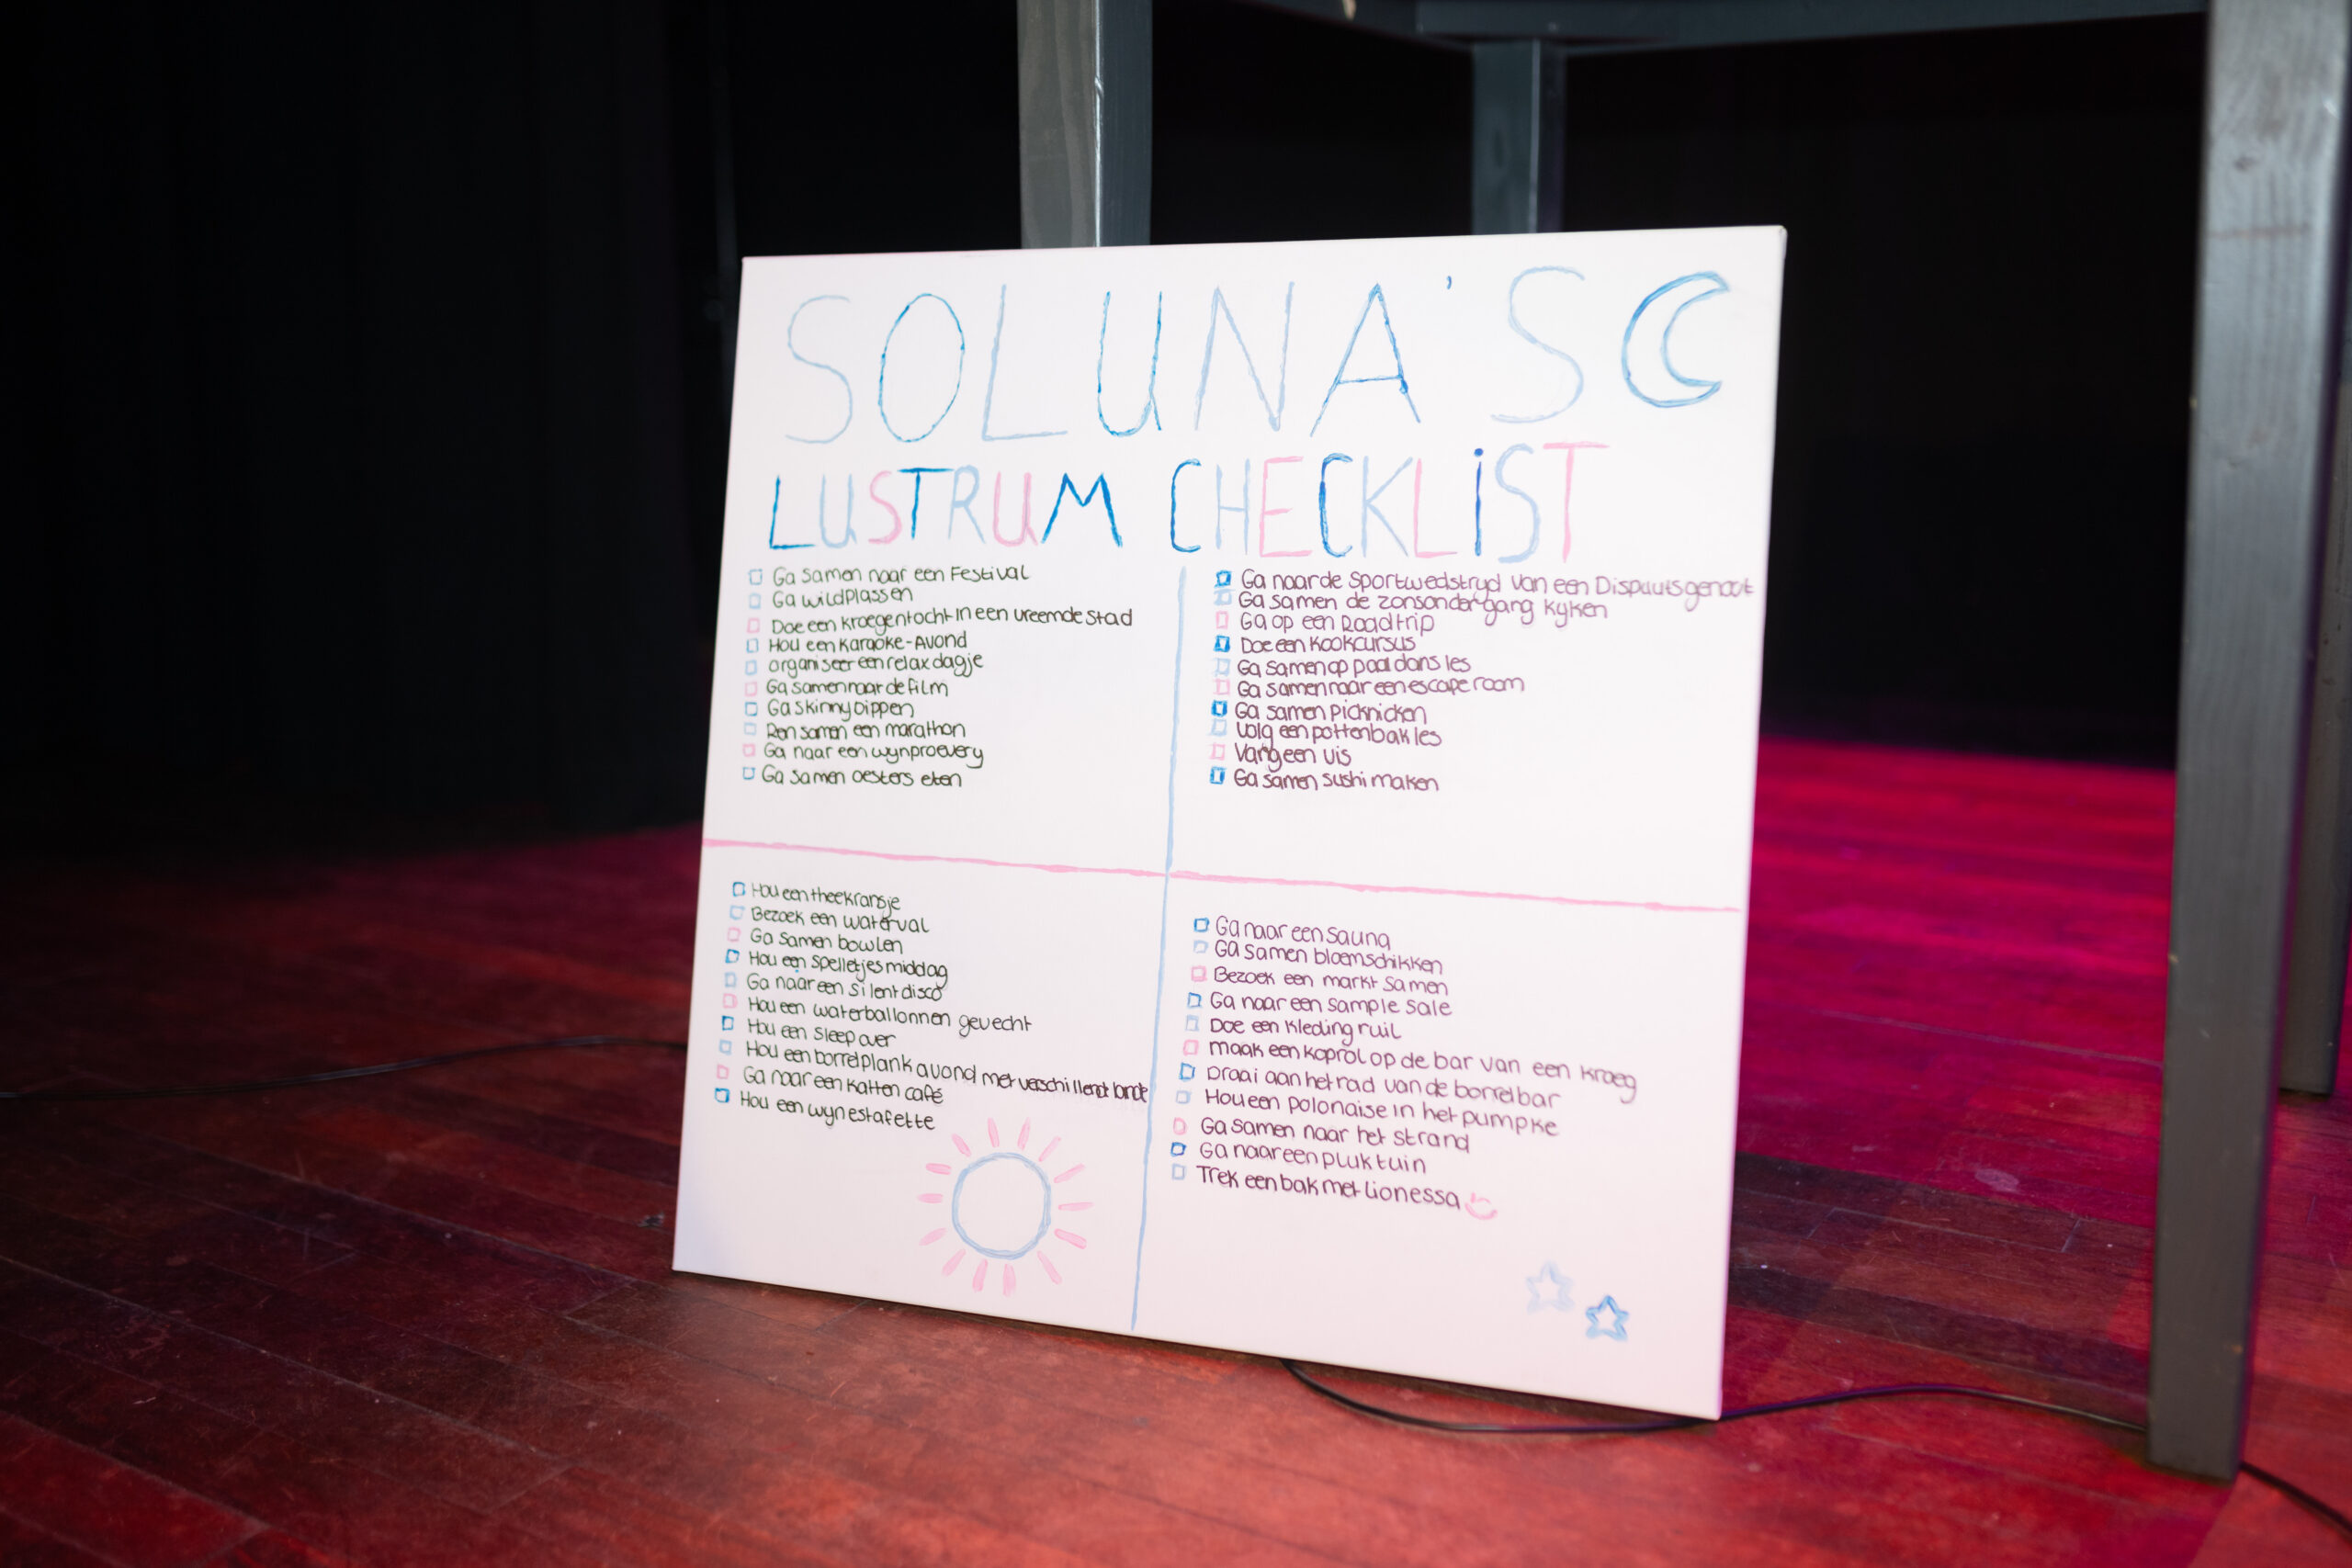 SOLUNA'S
LUSTRUM CHECKLIST
Ga samen naar een Festival
Ga wildplassen
Doe een kroegentocht in een vreemde stad
Hou een karaoke-Avond
organiseer een relax dagje
Ga samen naar de film
Ga skinny dippen
Ren samen een marathon
Ga naar een wynproevery
Ga samen oesters eten
Ga naar de sportwedstryd van een Dispuutsgenoot
Ga samen de zonsondergang kyken
Ga op een Roadtrip
Doe een kookcursus
Ga samen op paaldans les
Ga samen naar een escape room
Ga samen picknicken
Volg een pottenbak les
Vang een vis
Ga samen sushi maken
Hou een theekransje
Bezoek een waterval
Ga samen bowlen
Hou een spelletjes middag
Ga naar een silent disco
Hou een waterballonnen gevecht
Hou een sleepover
Hou een borrelplank avond met verschillende
Ga naar een katten café
Hou een wyn estafette
Ga naar een sauna
Ga samen bloemschikken
Bezoek een markt samen
Ga naar een sample sale
Doe een kleding ruil
maak een koprol op de bar van een kroeg
Draai aan het rad van de borrelbar
Hou een polonaise in het pumpke
Ga samen naar het strand
Ga naar een pluktuin
Trek een bak met Lionessa